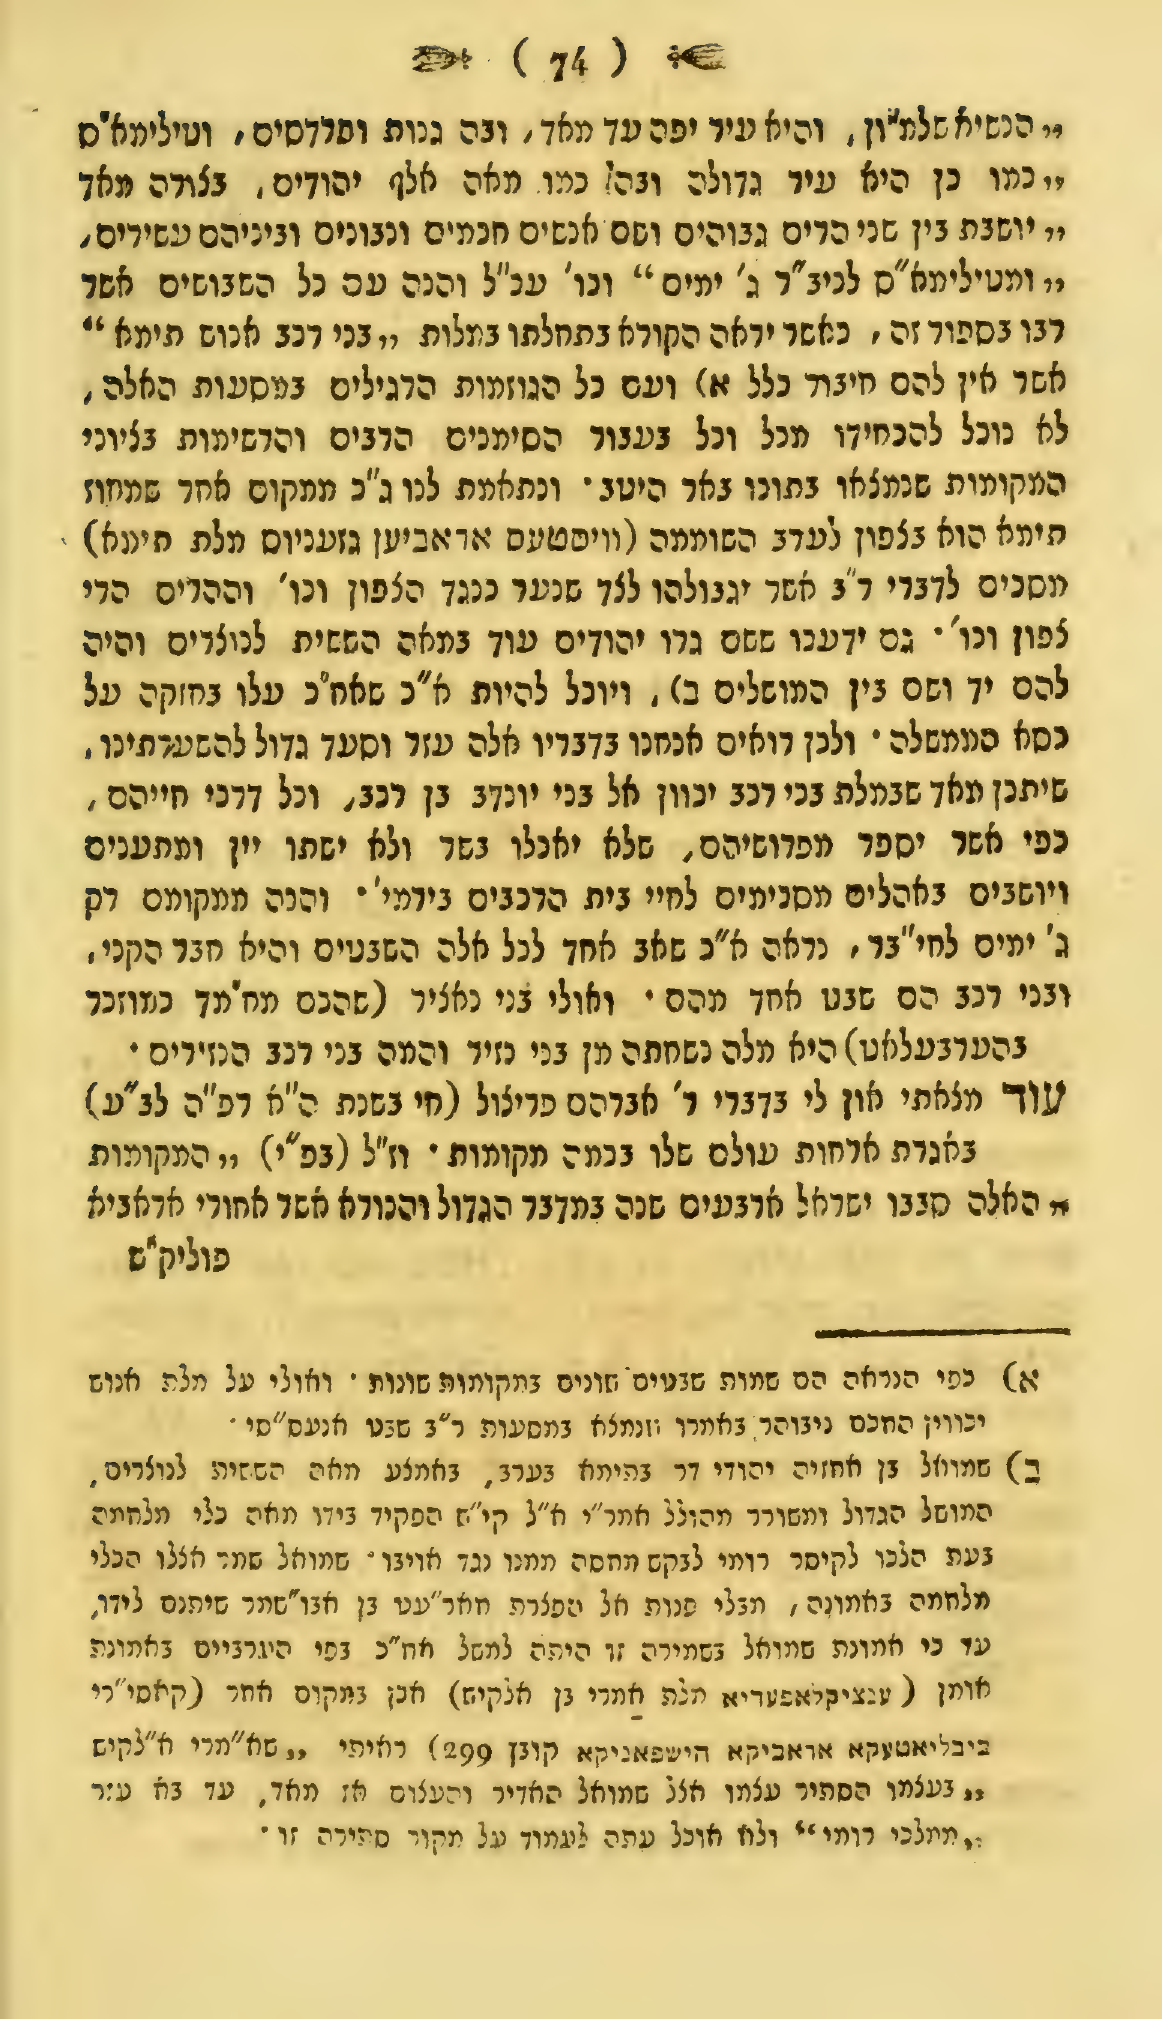 ( 74 )
„הנשיא שלמ״ון, והיא עיר יפה עד מאד, ובה גנות ופרדסים, וטילימא״ס
„כמו כן היא עיר גדולה ובה כמו מאה אלף יהודים, בצורה מאד
„יושבת בין שני הרים גבוהים ושם אנשים חכמים ונבונים וביניהם עשירים,
„ומטילימא״ס לכיב״ר ג׳ ימים“ וכו׳ עכ״ל והנה עם כל השבושים אשר
רבו בספור זה, כאשר יראה הקורא בתחלתו במלות „בני רכב אנוש תימא“
אשר אין להם חיבור כלל א) ועם כל הגוזמות הרגילים במסעות האלה,
לא נוכל להכחידו מכל וכל בעבור הסימנים הרבים והרשימות בציוני
המקומות שנמצאו בתוכו באר היטב · ונתאמת לנו ג״כ ממקום אחר שמחוז
תימא הוא בצפון לערב השוממה (וויסטעס אראביען גזעניוס מלת תימא)
מסכים לדברי ר״ב אשר יגבולהו לצד שנער כנגד הצפון וכו׳ וההרים הרי
צפון וכו׳ · גם ידענו ששם גרו יהודים עוד במאה הששית לנוצרים והיה
להם יד ושם בין המושלים ב), ויוכל להיות א״כ שאח״כ עלו בחזקה על
כסא הממשלה · ולכן רואים אנחנו בדבריו אלה עזר וסעד גדול להשערתינו,
שיתכן מאד שבמלת בני רכב יכוון אל בני יונדב בן רכב, וכל דרכי חייהם,
כפי אשר יספר מפרושיהם, שלא יאכלו בשר ולא ישתו יין ומתענים
ויושבים באהלים מסכימים לחיי בית הרכבים בירמי׳ · והנה ממקומם רק
ג׳ ימים לחי״בר, נראה א״כ שאב אחד לכל אלה השבטים והיא חבר הקני,
ובני רכב הם שבט אחד מהם · ואולי בני נאציר (שהכם מח״מד כמוזכר
בהערבעלאט) היא מלה נשחתה מן בני נזיר והמה בני רכב הנזירים ·
עוד מצאתי און לי בדברי ר׳ אברהם פריצול (חי בשנת ה״א רפ״ה לב״ע)
באגרת ארחות עולם שלו בכמה מקומות · וז״ל (בפ״י) „המקומות
„האלה סבבו ישראל ארבעים שנה במדבר הגדול והנורא אשר אחורי אראביא
פוליק״ש
א) כפי הנראה הם שמות שבטים שונים במקומות שונות · ואולי על מלת אנוש
יכווין החכם ניבוהר באמרו ונמצא במסעות ר״ב שבט אנעס״סי ·
ב) שמואל בן אחזיה יהודי דר בתימא בערב, באמצע מאה הששית לנוצרים,
המושל הגדול ומשורר מהולל אמר״י א״ל קי״ש הפקיד בידו מאה כלי מלחמה
בעת הלכו לקיסר רומי לבקש מחסה ממנו נגד אויבו · שמואל שמר אצלו הכלי
מלחמה באמונה, מבלי פנות אל הפצרת חאר״עט בן אבו״שמר שיתנם לידו,
עד כי אמונת שמואל בשמירה זו היתה למשל אח״כ בפי הערביים באמונת
אומן (ענציקלאפעדיא מלת אמרי בן אלקיש) אכן במקום אחר (קאסי״רי
ביבליאטעקא אראביקא הישפאניקא קובץ 299) ראיתי „שא״מרי א״לקיש
„בעצמו הסתיר עצמו אצל שמואל האדיר והעצום אז מאד, עד בא עזר
„ממלכי רומי“ ולא אוכל עתה לעמוד על מקור סתירה זו ·